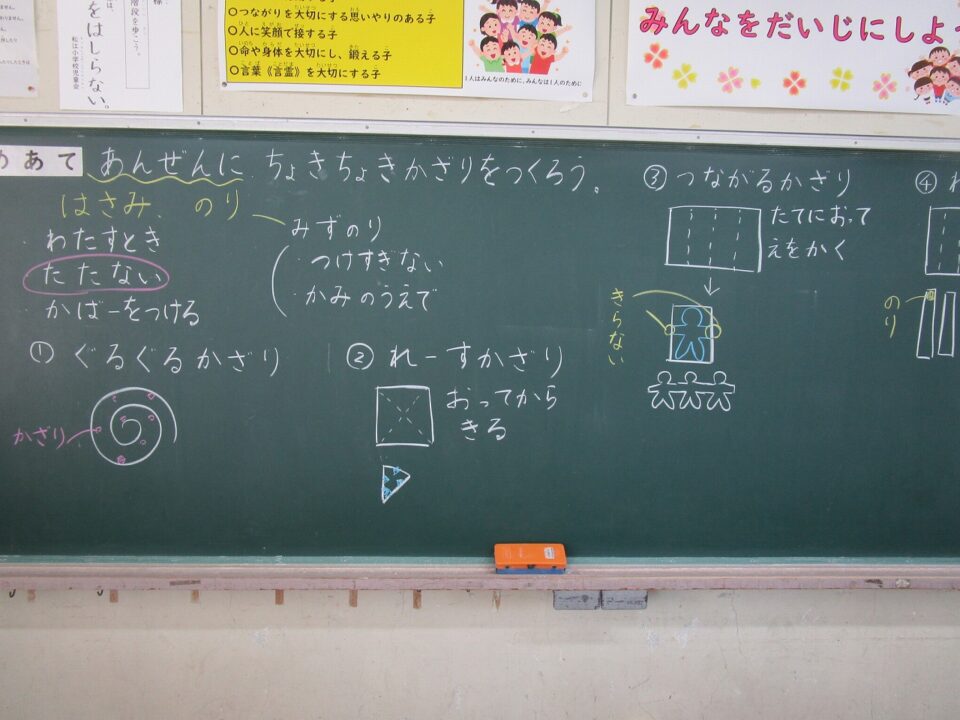 階段を歩こう。
をはしらない。
松江小学校児童会
○つながりを大切にする思いやりのある子
○人に笑顔で接する子
○命や身体を大切にし、鍛える子
○言葉《言霊》を大切にする子
1人はみんなのために、みんなは1人のために
みんなをだいじにしよ
めあて
あんぜんに ちょきちょきかざりをつくろう。
はさみ、 のり
・わたすとき
たたない
・かばーをつける
みずのり
・つけすぎない
・かみのうえで
① ぐるぐるかざり
かざり
② れーすかざり
おってから
きる
③ つながるかざり
たてにおって
えをかく
きらない
④
のり